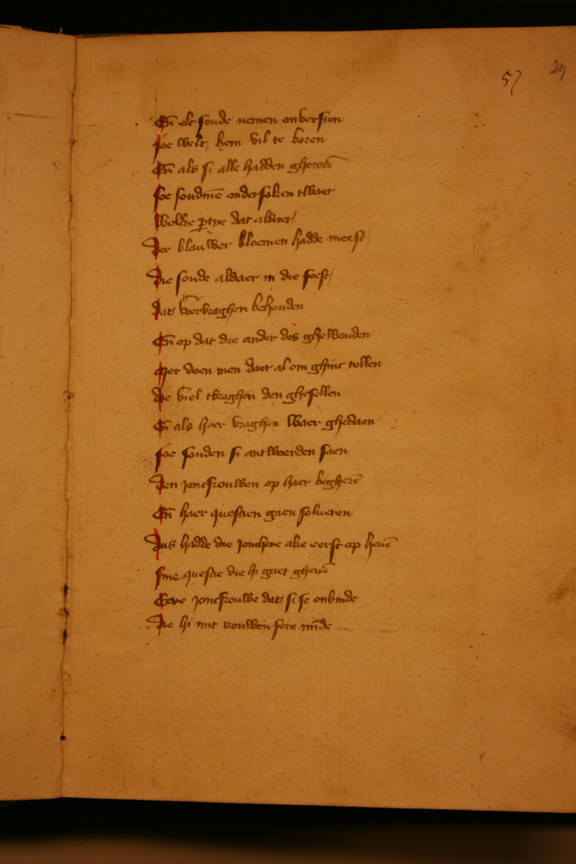 57 29
En̄ elc soude nemen onversien
soe welc hem vil te voren
En̄ als si alle hadden ghecorē
soe soudmē ondersoken twaer
welke ꝑtye dat aldaer
Der blauwer bloemen hadde meest
Die soude aldaer in die feest
dat vervraghen behouden
En̄ op dat die ander des ghewouden
Met doen men daer al om ghinc tollen
die viel tvraghen den ghesellen
En̄ als haer vraghen waer ghedaen
soe souden si antwoerden saen
Den joncfrouwen op haer begherē
En̄ haer questien gaen solveren
Dus hadde die jonchere alre eerst op hevē
sine questie die hi gaet ghevē
Eere joncfrouwe dat si se onbinde
Die hi mit trouwen sere mīde